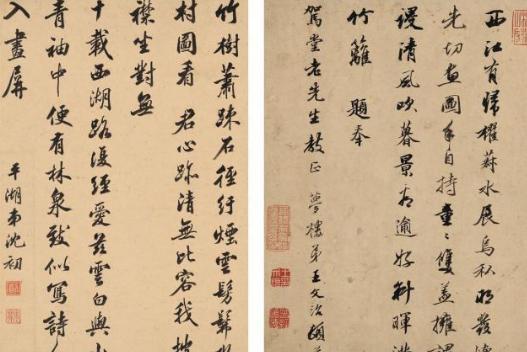 西江有歸櫂菽水展烏私明發懷
先切畫圖手自持童童雙蓋擁謖
謖清風吹暮景有逾好斜暉淡
竹籬 題奉
駕堂老先生教正 夢樓弟王文治頓
竹樹蕭疎石徑紆煙雲髣髴
村圖看君心跡清無比容我披
襟坐對無
十載西湖路復經愛茲雲白與山
青袖中便有林泉致似寫詩人
入畫屏
平湖弟沈初